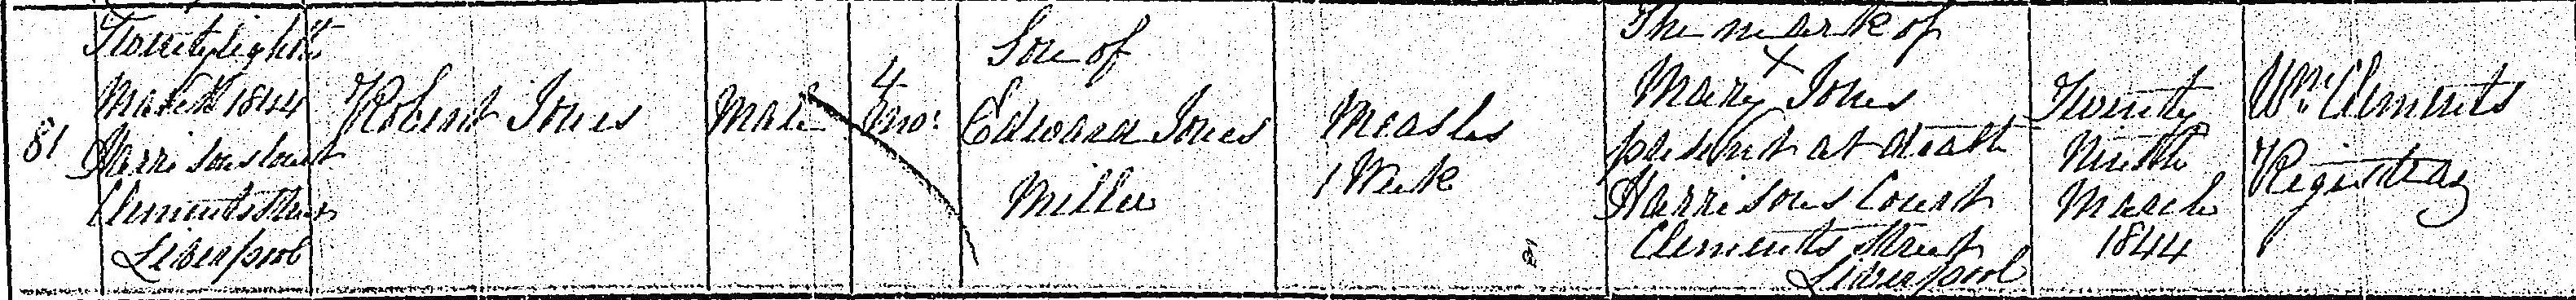 81
Twenty eighth
March 1844
Harrisons Court
Clements Street
Liverpool
Robert Jones
Male
4
mos
Son of
Edward Jones
Miller
Measles
1 Week
The mark of
X
Mary Jones
present at death
Harrisons Court
Clements Street
Liverpool
Twenty
Ninth
March
1844
Wm Clements
Registrar